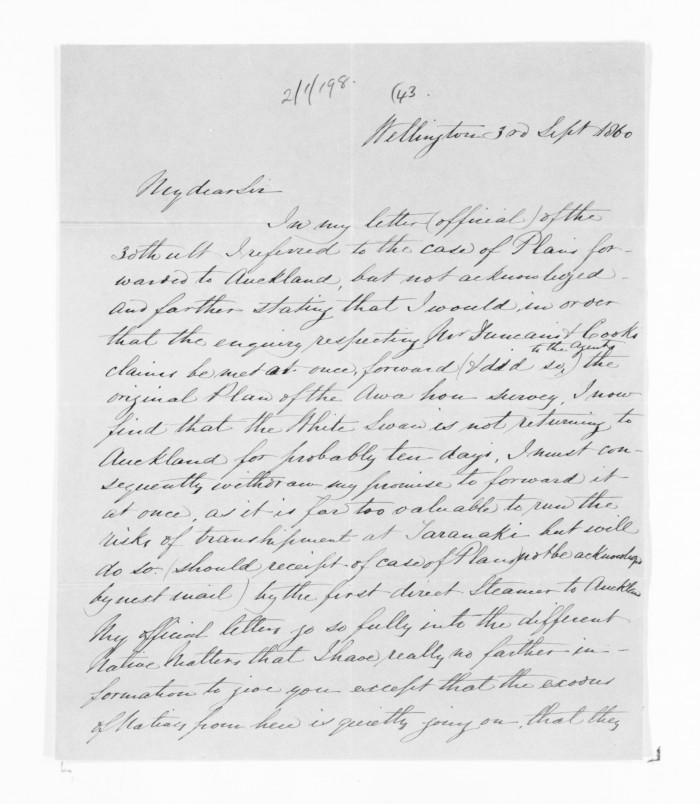 2/1/198. (43.
Wellington 3rd Sept 1860
My dear Sir
In my letter (official) of the
30th ult I referred to the case of Plans for-
warded to Auckland, but not acknowledged -
and farther stating that I would in order
that the enquiry respecting Mr Duncan's & Cooks
to the Agents
claims be met at once, forward (& did so,) the
original Plan of the Awa hou survey, I now
find that the White Swan is not returning to
Auckland for probably ten days, I must con-
sequently withdraw my promise to forward it
at once, as it is far too valuable to run the
risks of transhipment at Taranaki but will
do so (should receipt of case of Plans not be acknowledged
by next mail) by the first direct Steamer to Auckland
My official letters go so fully into the different
Native Matters that I have really no farther in-
formation to give you except that the exodus
of Natives from here is quietly going on, that they